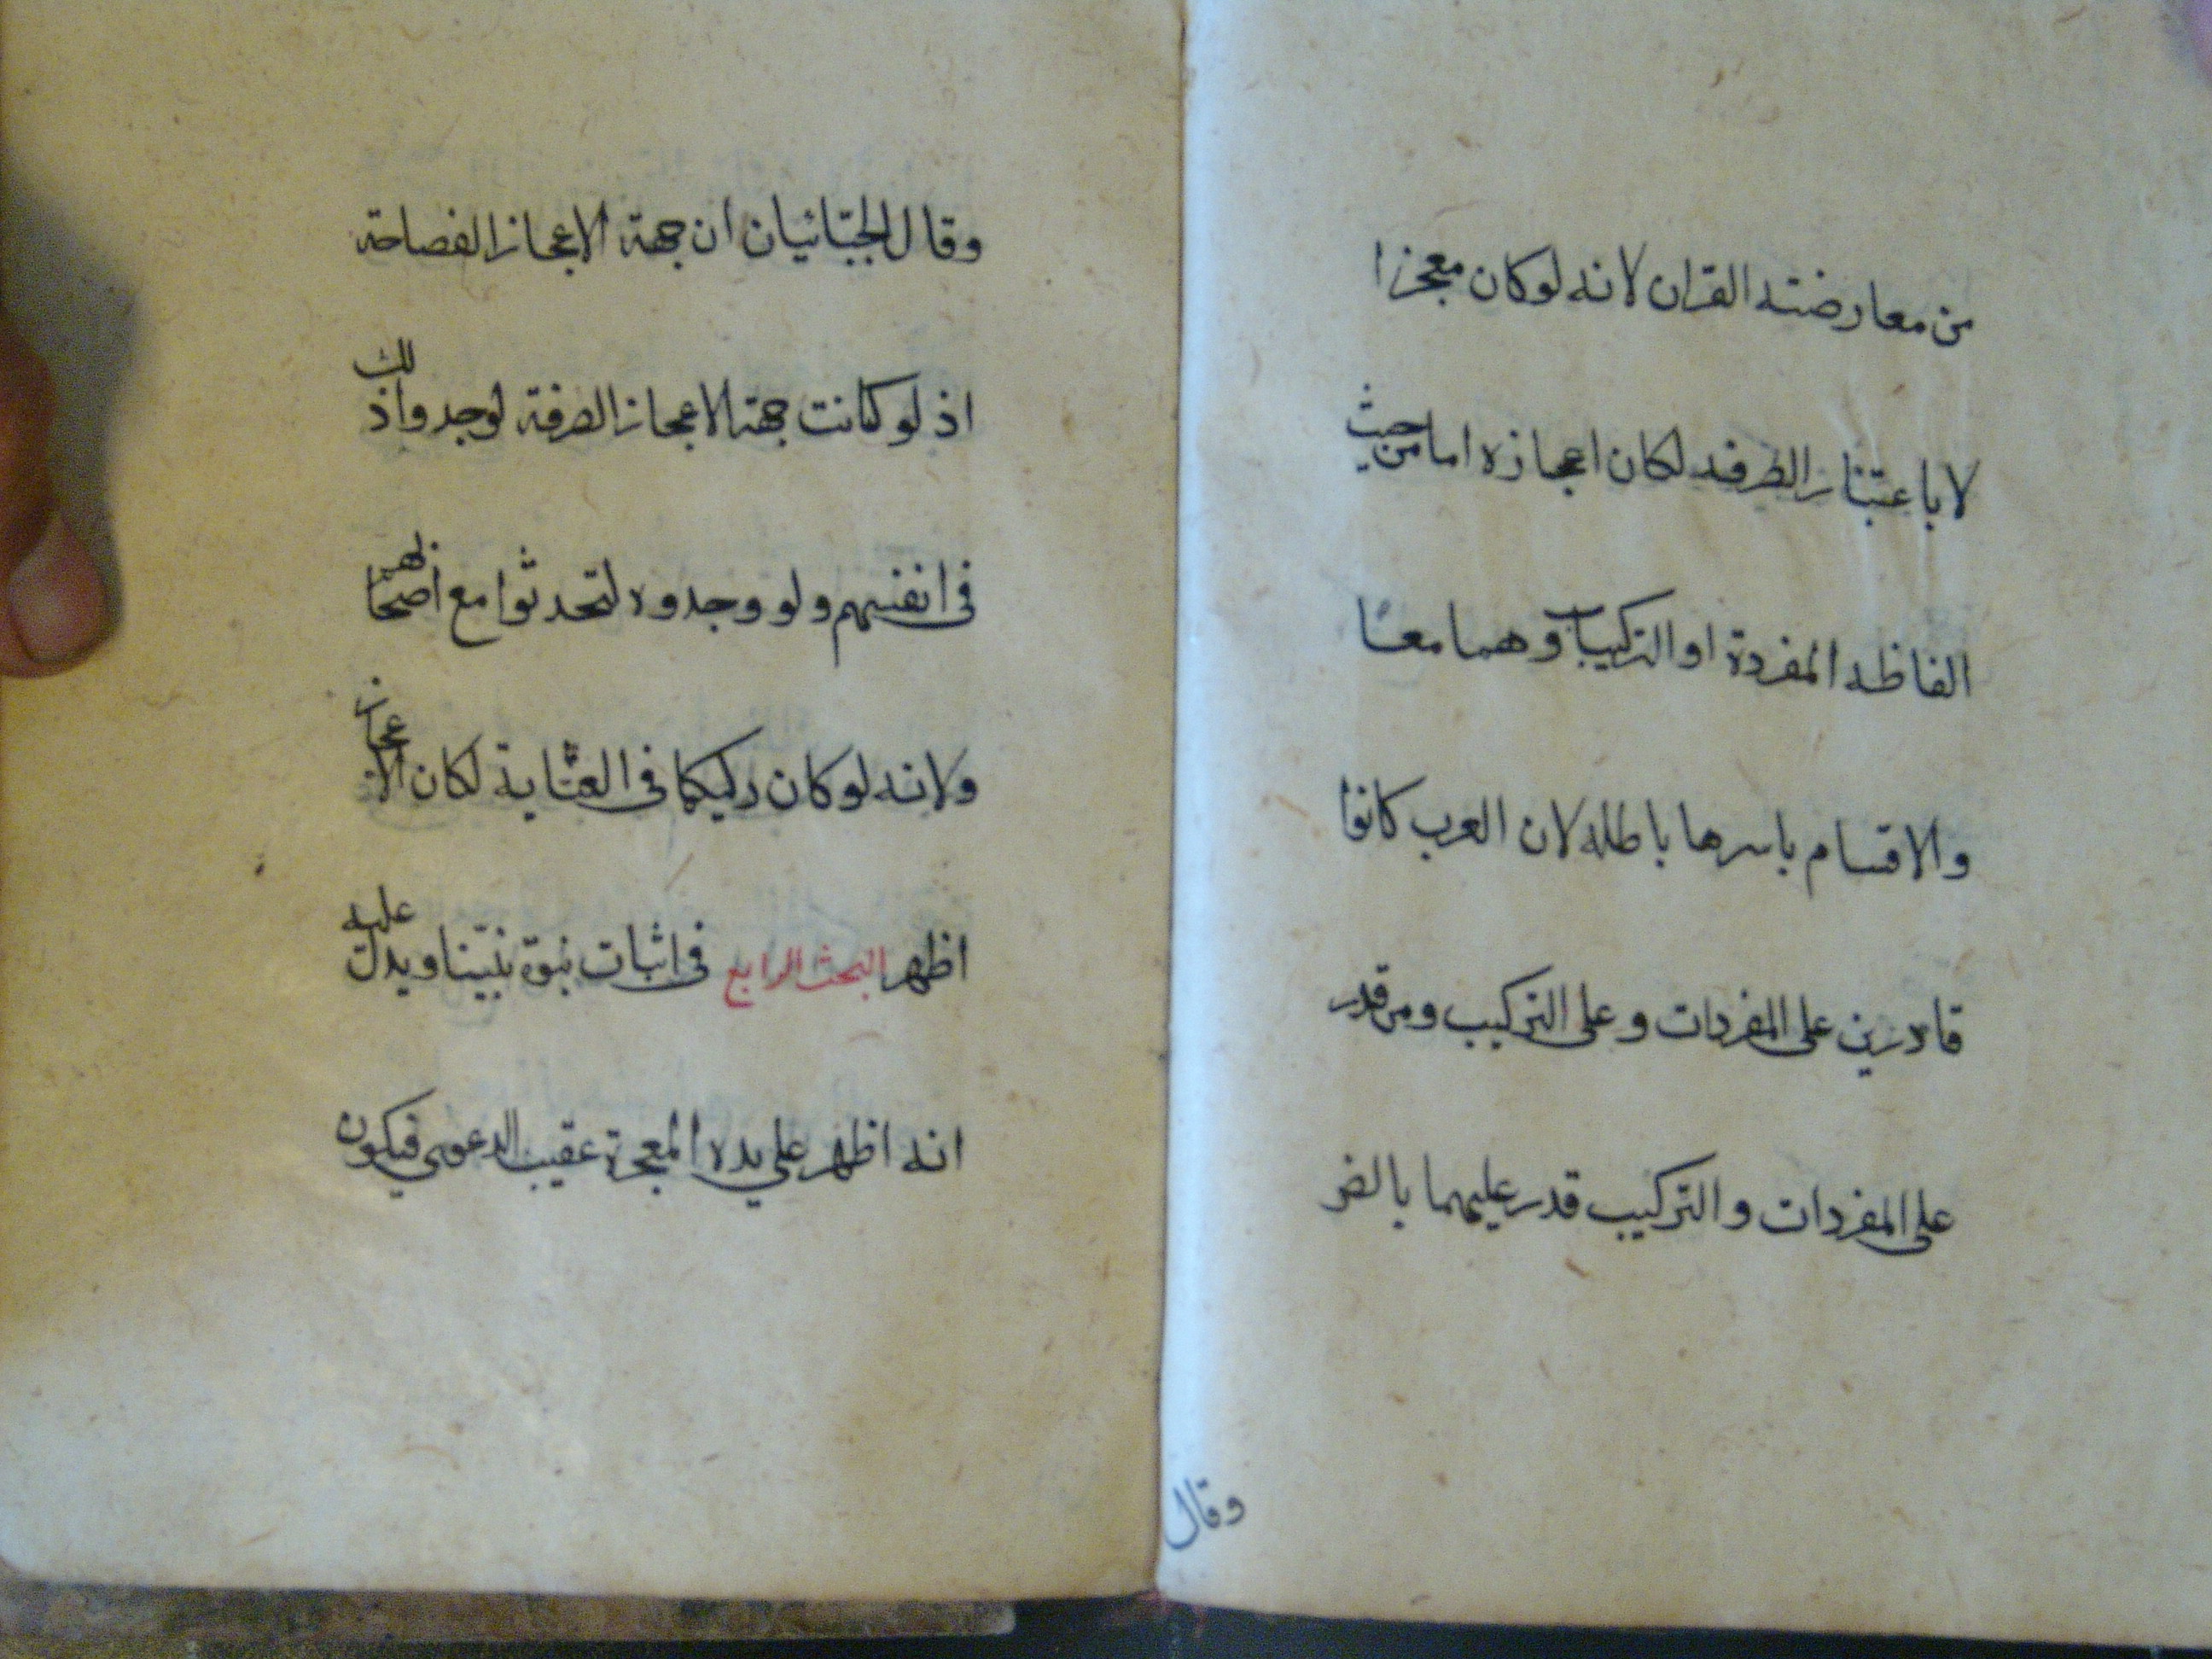 من معارضته القران لانه لو كان معجزا
لا باعتبار الصرفه لكان اعجازه اما من حيث
الفاظه المفردة او التركيبات وهما معا
والاقسام باسرها باطله لان العرب كانوا
قادرين على المفردات و على التركيب ومن قدر
على المفردات و التركيب قدر عليهما بالضر
وقال
وقال الجبّائيان ان جهة الاعجاز الفصاحة
اذ لو كانت جهة الاعجاز الصرفة لوجدوا ذلك
فى انفسهم ولو وجدوه لتحدثوا مع اصحابهم
ولانه لو كان ركيكا فى الغاية لكان الاعجاز
اظهر البحث الرابع فى اثبات نبوة نبيّنا ويدل عليه
انه اظهر على يده المعجزة عقيب الدعوى فيكون